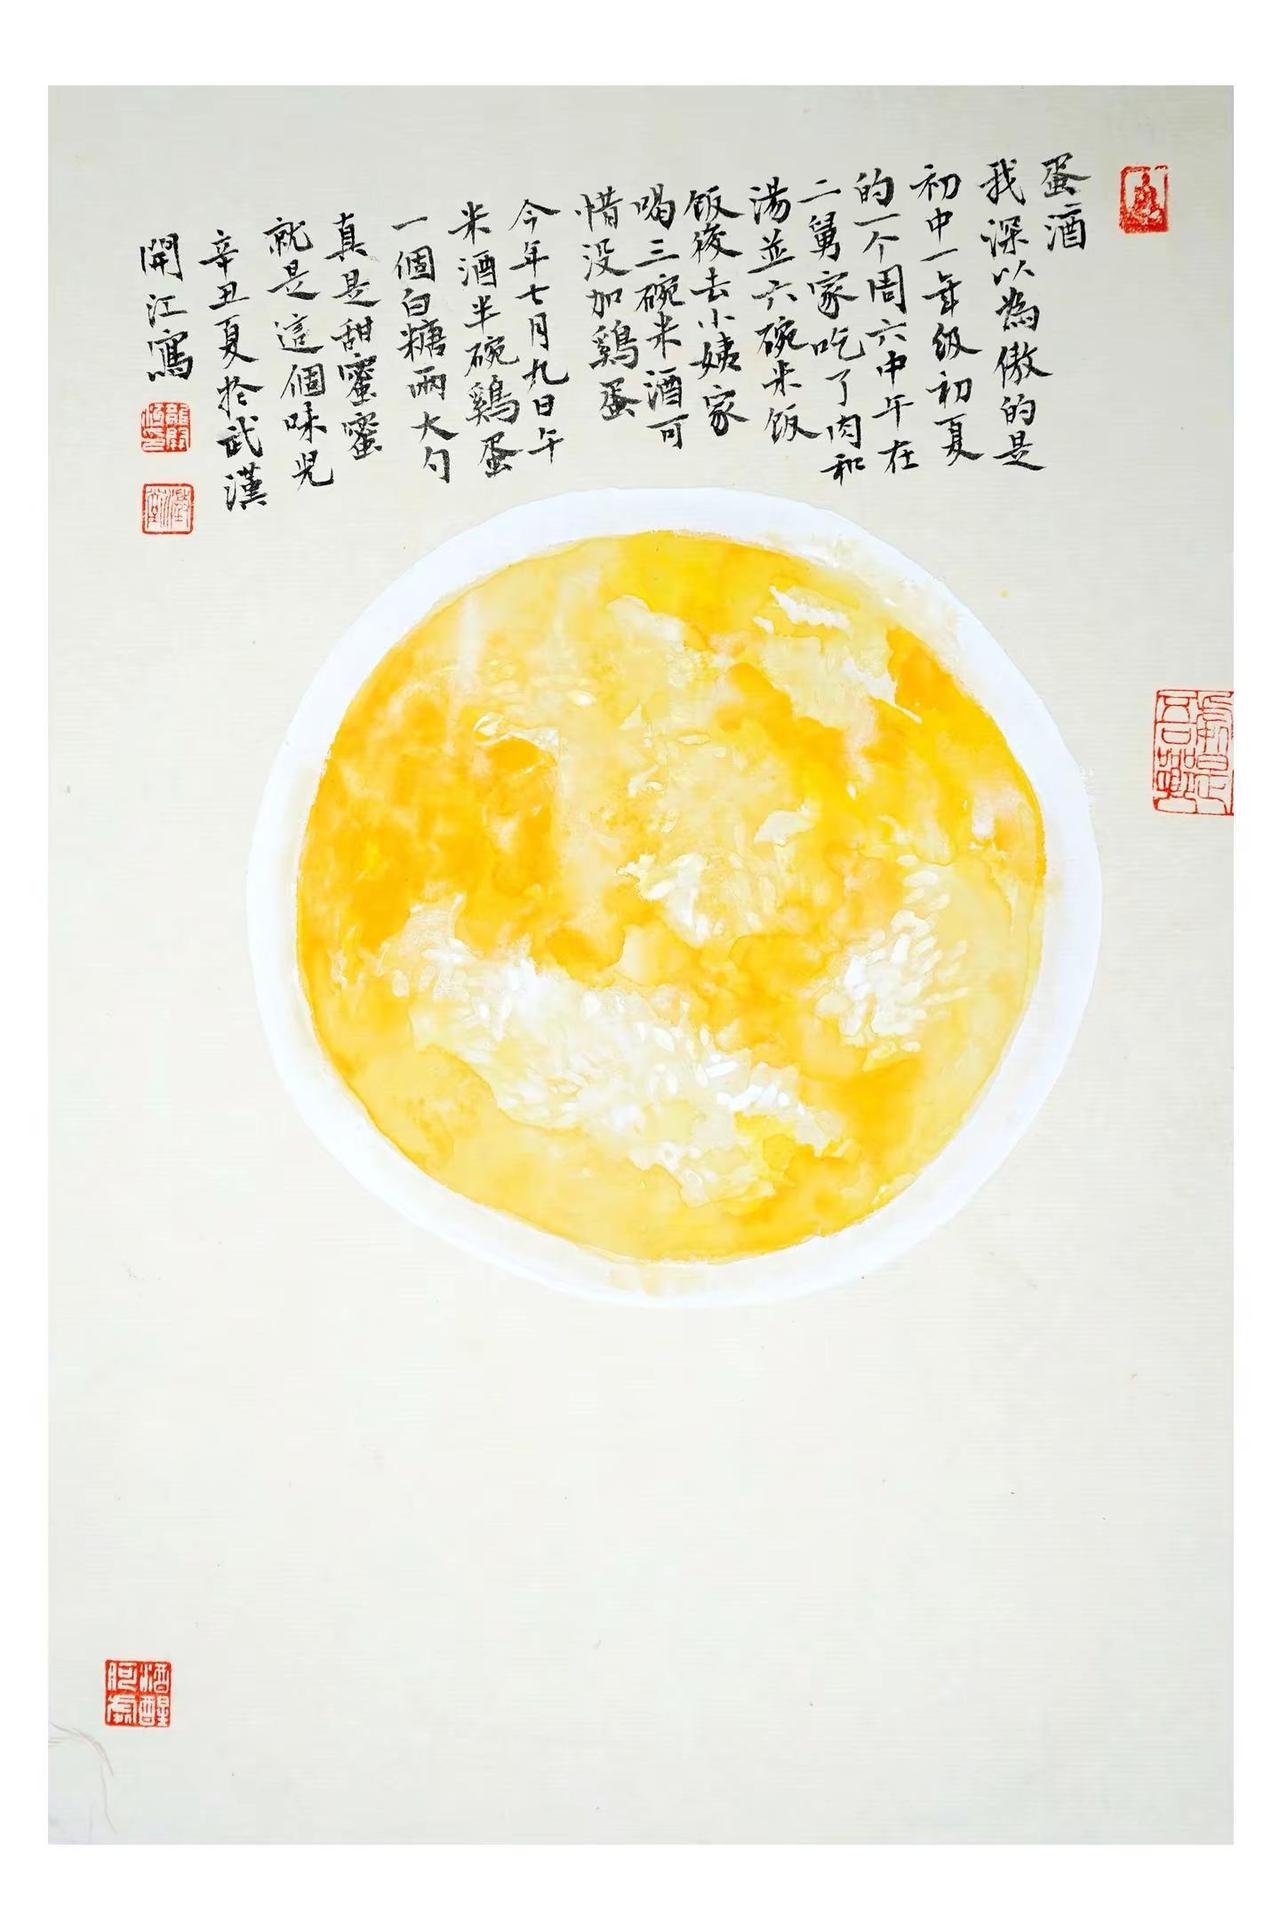 蛋酒
我深以為傲的是
初中一年级初夏
的一个周六中午在
二舅家吃了肉和
湯並六碗米饭
饭後去小姨家
喝三碗米酒可
惜没加鷄蛋
今年七月九日午
米酒半碗鷄蛋
一個白糖兩大勺
真是甜蜜蜜
就是這個味児
辛丑夏於武漢
開江寫
酒醒何處